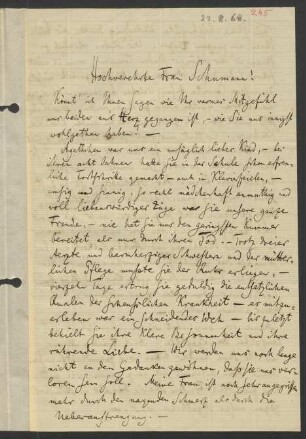 245
Hochverehrte Frau Schumann!
Könnt' ich Ihnen sagen wie Ihr warmes Mitgefühl
uns beiden aus Herz gegangen ist, – wie Sie uns innigst
wohlgethan haben! –
war uns ein unsäglich liebes Kind, – bei
ihren acht Jahren hatte sie in der Schule schon erfreu-
liche Fortschritte gemacht – auch im Klavierspielen, –
und sinnig, so recht mädchenhaft anmuthig und
voll liebenswürdiger Züge war sie unsere ganze
Freude, – nie hat sie uns den geringsten Kummer
bereitet als nur durch ihren Tod. – trotz dreier
Aerzte und barmherziger Schwestern und der mütter-
lichen Pflege mußte sie der Ruhr erliegen, –
Tage ertrug sie geduldig die entsetzlichen
Qualen der Krankheit – es mitzu-
erleben war ein schneidendes Weh – bis zuletzt
behielt sie ihre klare Besonnenheit und ihre
rührende Liebe. – Wir werden uns noch lange
nicht an den Gedanken gewöhnen, daß sie uns ver-
loren sein soll. Meine Frau ist noch sehr angegriffen
mehr durch den nagenden Schmerz als durch die
Ueberanstrengung. –